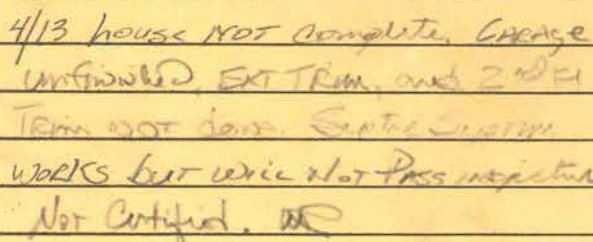 4/13 house NOT Complete. GARAGE
unfinished, EXT TRIM, and 2nd Fl
Trim NOT done. Septic System
WORKS but will Not Pass inspection
Not Certified.